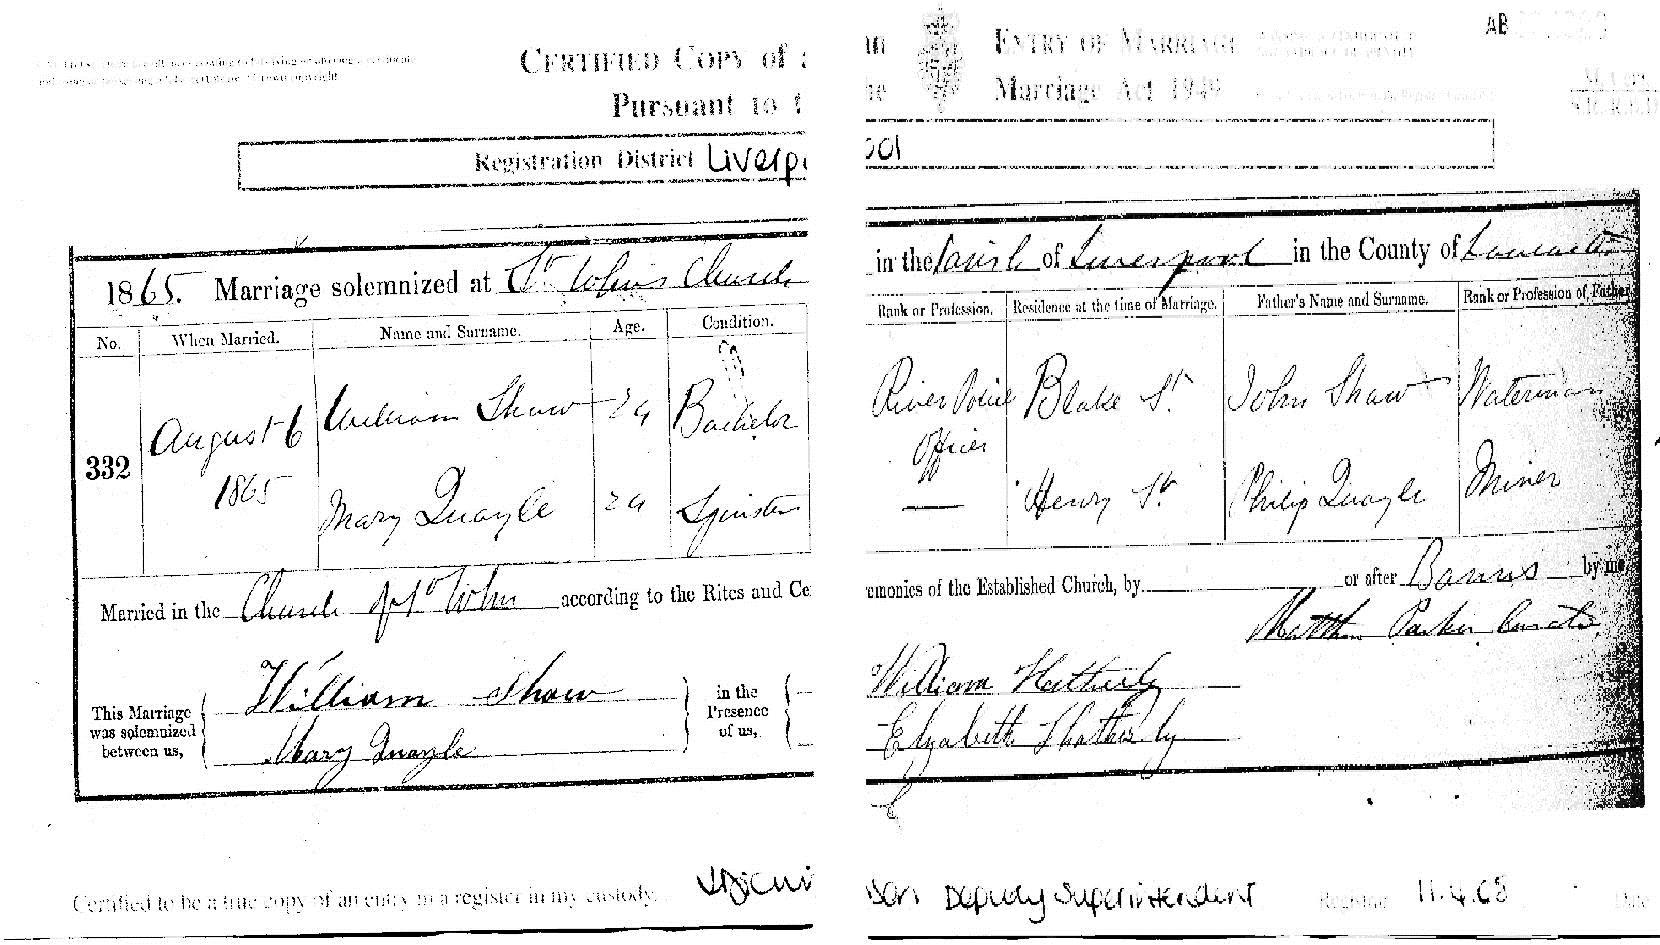 CERTIFIED COPY of a
Pursuant to t
Registration District Liverpo
1865. Marriage solemnized at St. John's Church
No. When Married. Name and Surname. Age. Condition.
332 August 6 1865
William Shaw 24 Bachelor
Mary Quayle 24 Spinster
Married in the Church of St John according to the Rites and Ce
This Marriage was solemnized between us,
William Shaw
Mary Quayle
in the Presence of us,
Certified to be a true copy of an entry in a register in my custody.
an ENTRY OF MARRIAGE
he Marriage Act 1949
AB
ool
in the Parish of Liverpool in the County of Lancaster
Rank or Profession. Residence at the time of Marriage. Father's Name and Surname. Rank or Profession of Father
River Police Officer Blake St. John Shaw Waterman
— Henry St. Philip Quayle Miner
emonies of the Established Church, by or after Banns by me,
Matthew Parker Curate
William Hatherly
Elizabeth Hatherly
son Deputy Superintendent Registrar 11.4.68 Date